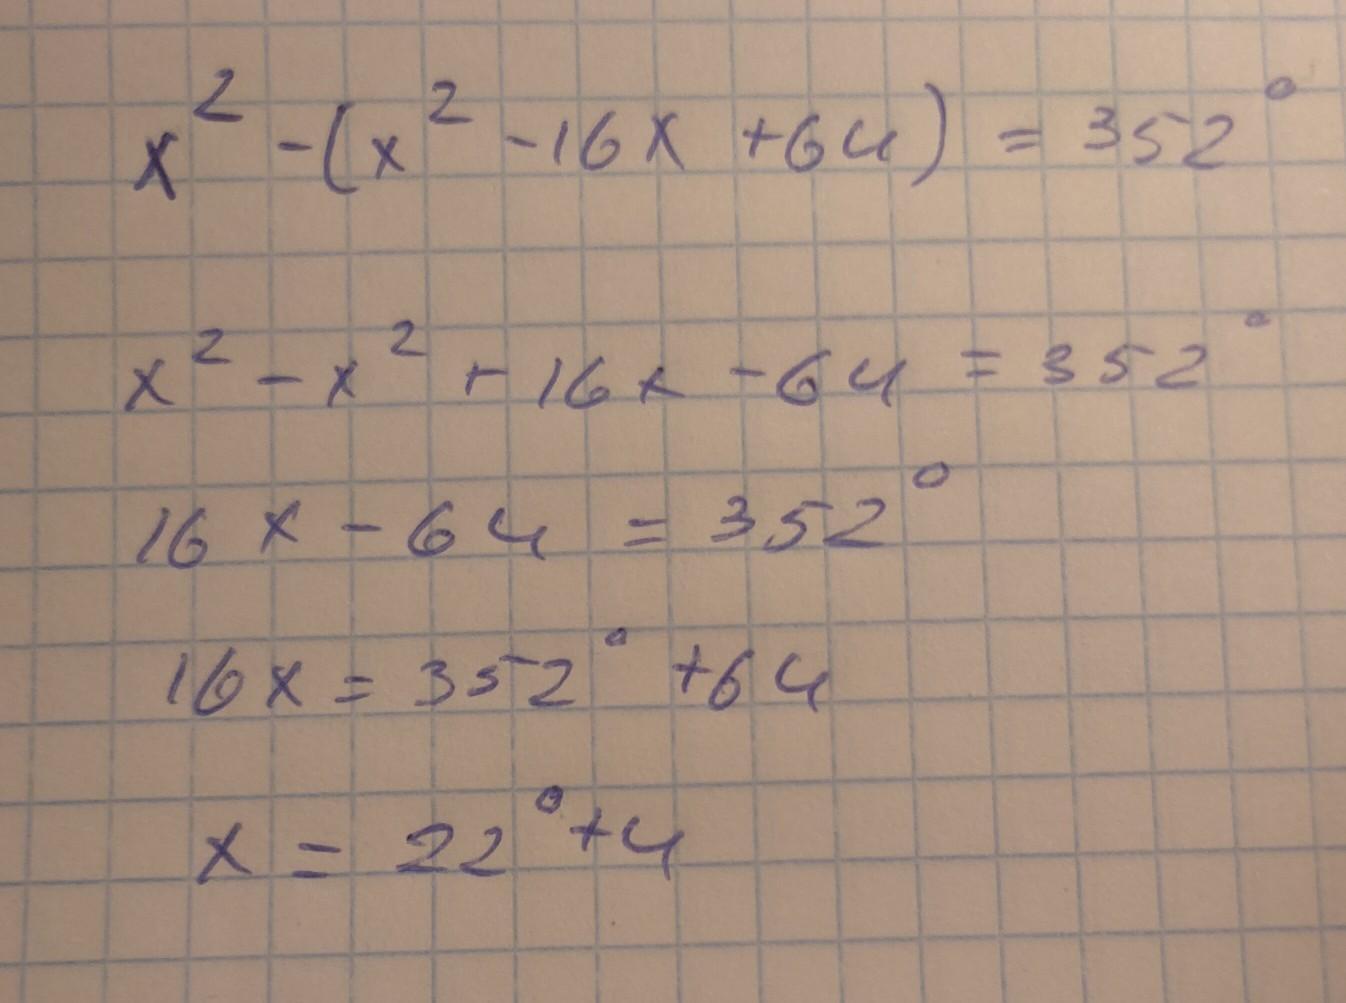 x² - (x² - 16x + 64) = 352°
x² - x² + 16x - 64 = 352°
16x - 64 = 352°
16x = 352° + 64
x = 22° + 4